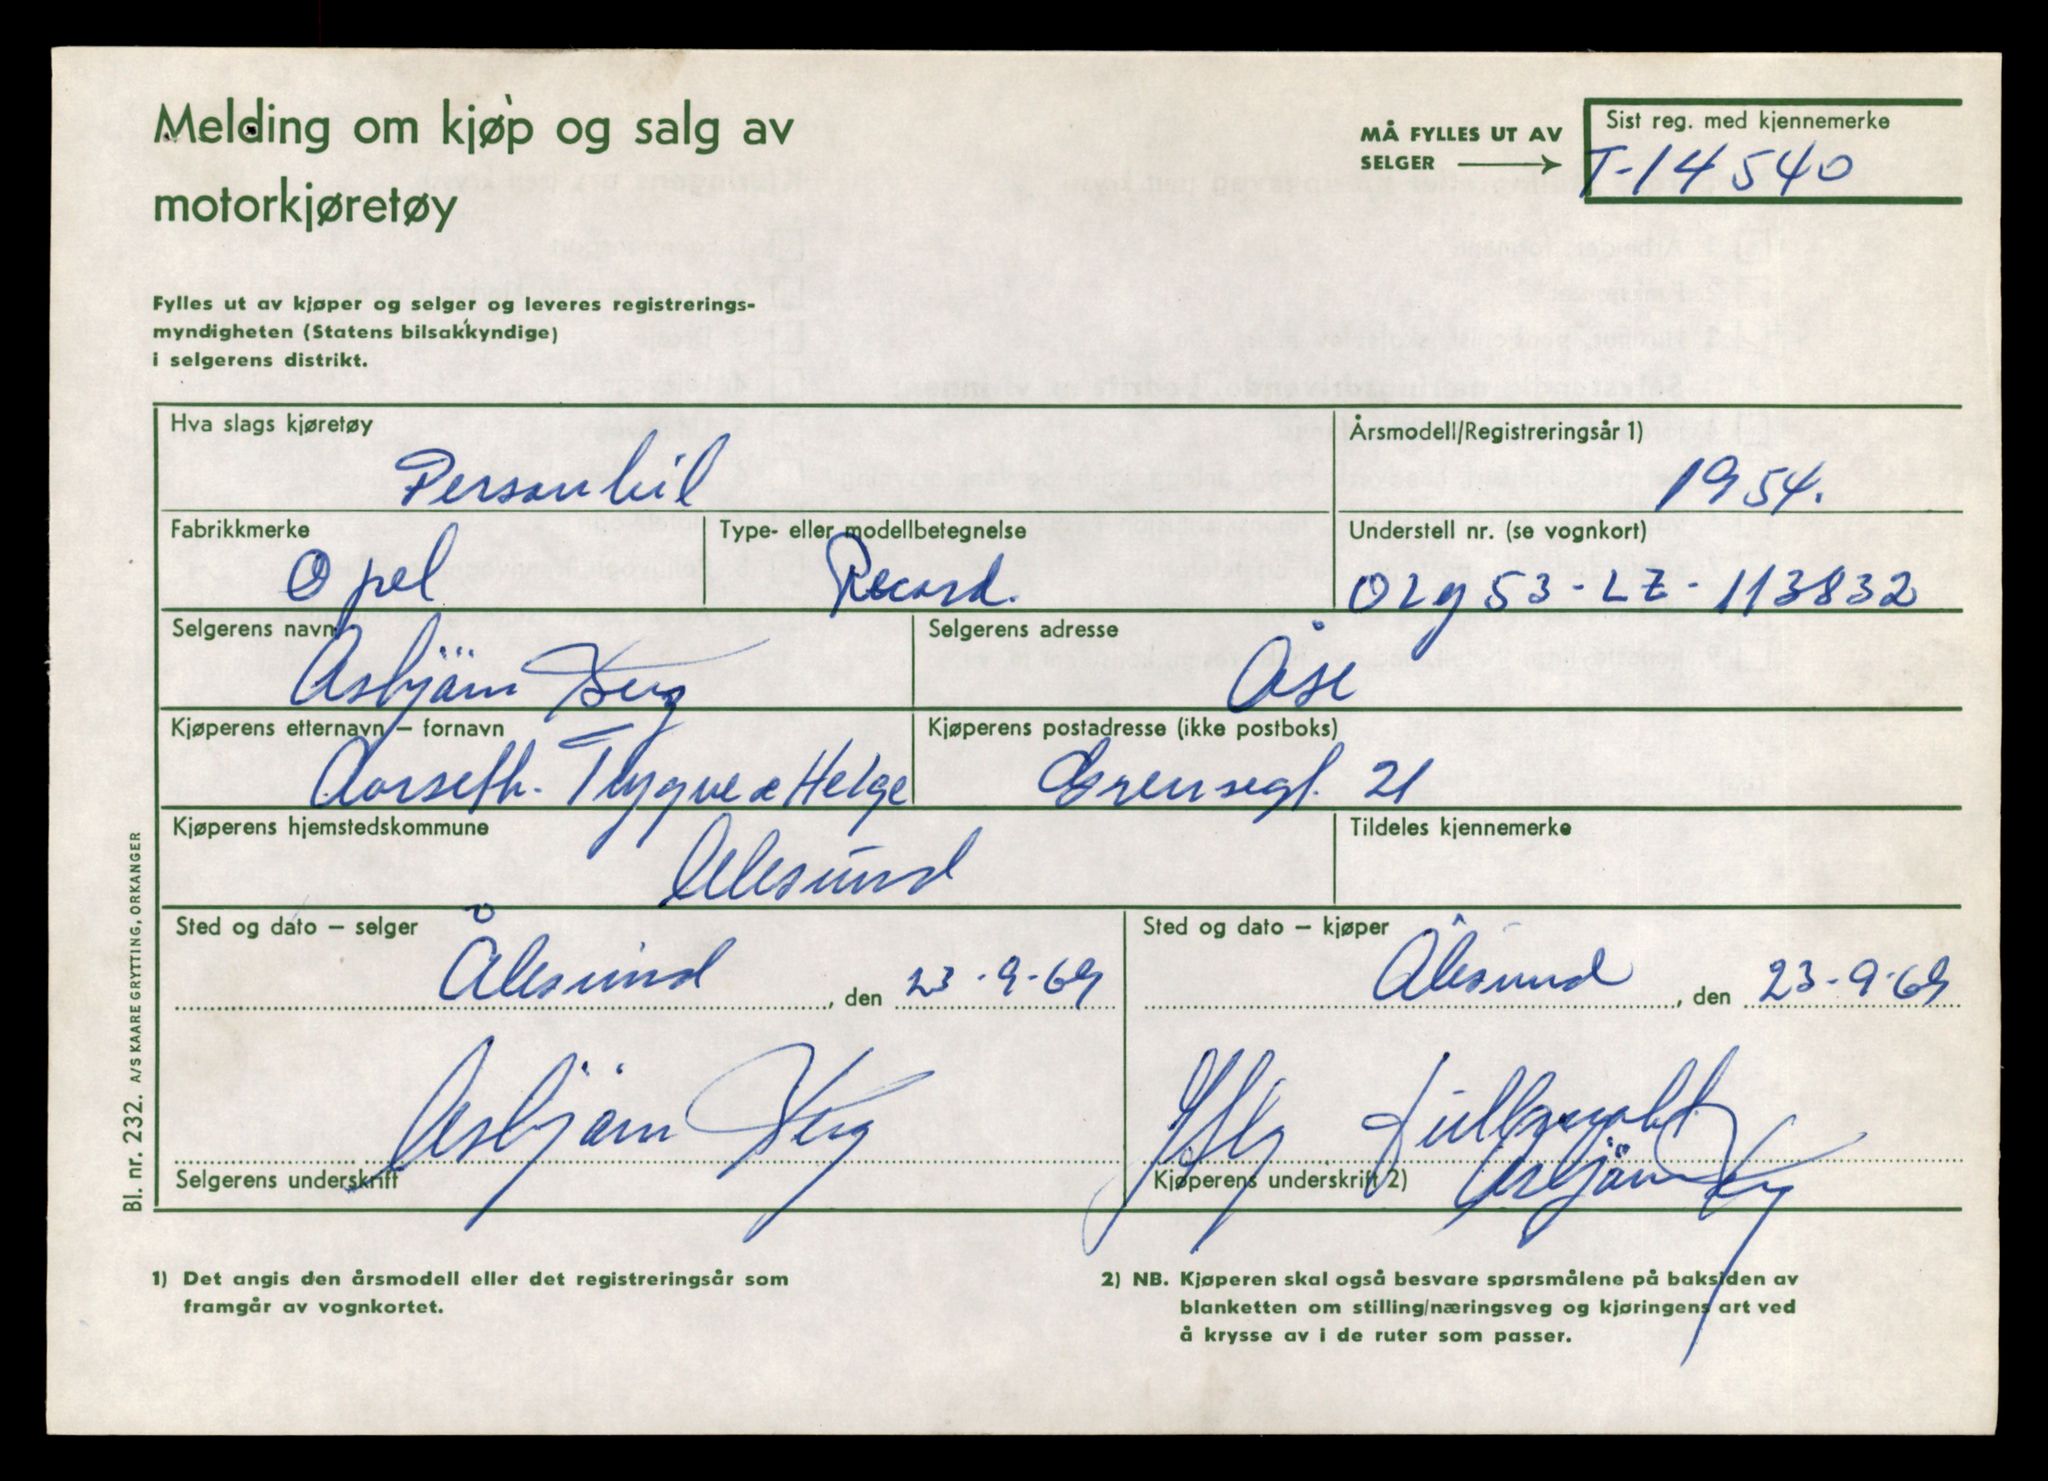 Melding om kjøp og salg av
motorkjøretøy
MÅ FYLLES UT AV
SELGER
Sist reg. med kjennemerke
T-14540
Fylles ut av kjøper og selger og leveres registrerings-
myndigheten (Statens bilsakkyndige)
i selgerens distrikt.
Hva slags kjøretøy
Personbil
Årsmodell/Registreringsår 1)
1954.
Fabrikkmerke
Opel
Type- eller modellbetegnelse
Record.
Understell nr. (se vognkort)
OLy53-LZ-113832
Selgerens navn
Asbjörn Berg
Selgerens adresse
Åse
Kjøperens etternavn – fornavn
Aarseth. Trygve & Helge
Kjøperens postadresse (ikke postboks)
Grensegt. 21
Kjøperens hjemstedskommune
Ålesund
Tildeles kjennemerke
Sted og dato – selger
Ålesund, den 23-9-69
Sted og dato – kjøper
Ålesund, den 23-9-69
Asbjörn Berg
Selgerens underskrift
Kjøperens underskrift 2)
Asbjörn Berg
1) Det angis den årsmodell eller det registreringsår som
framgår av vognkortet.
2) NB. Kjøperen skal også besvare spørsmålene på baksiden av
blanketten om stilling/næringsveg og kjøringens art ved
å krysse av i de ruter som passer.
Bl. nr. 232. A/S KAARE GRYTTING, ORKANGER